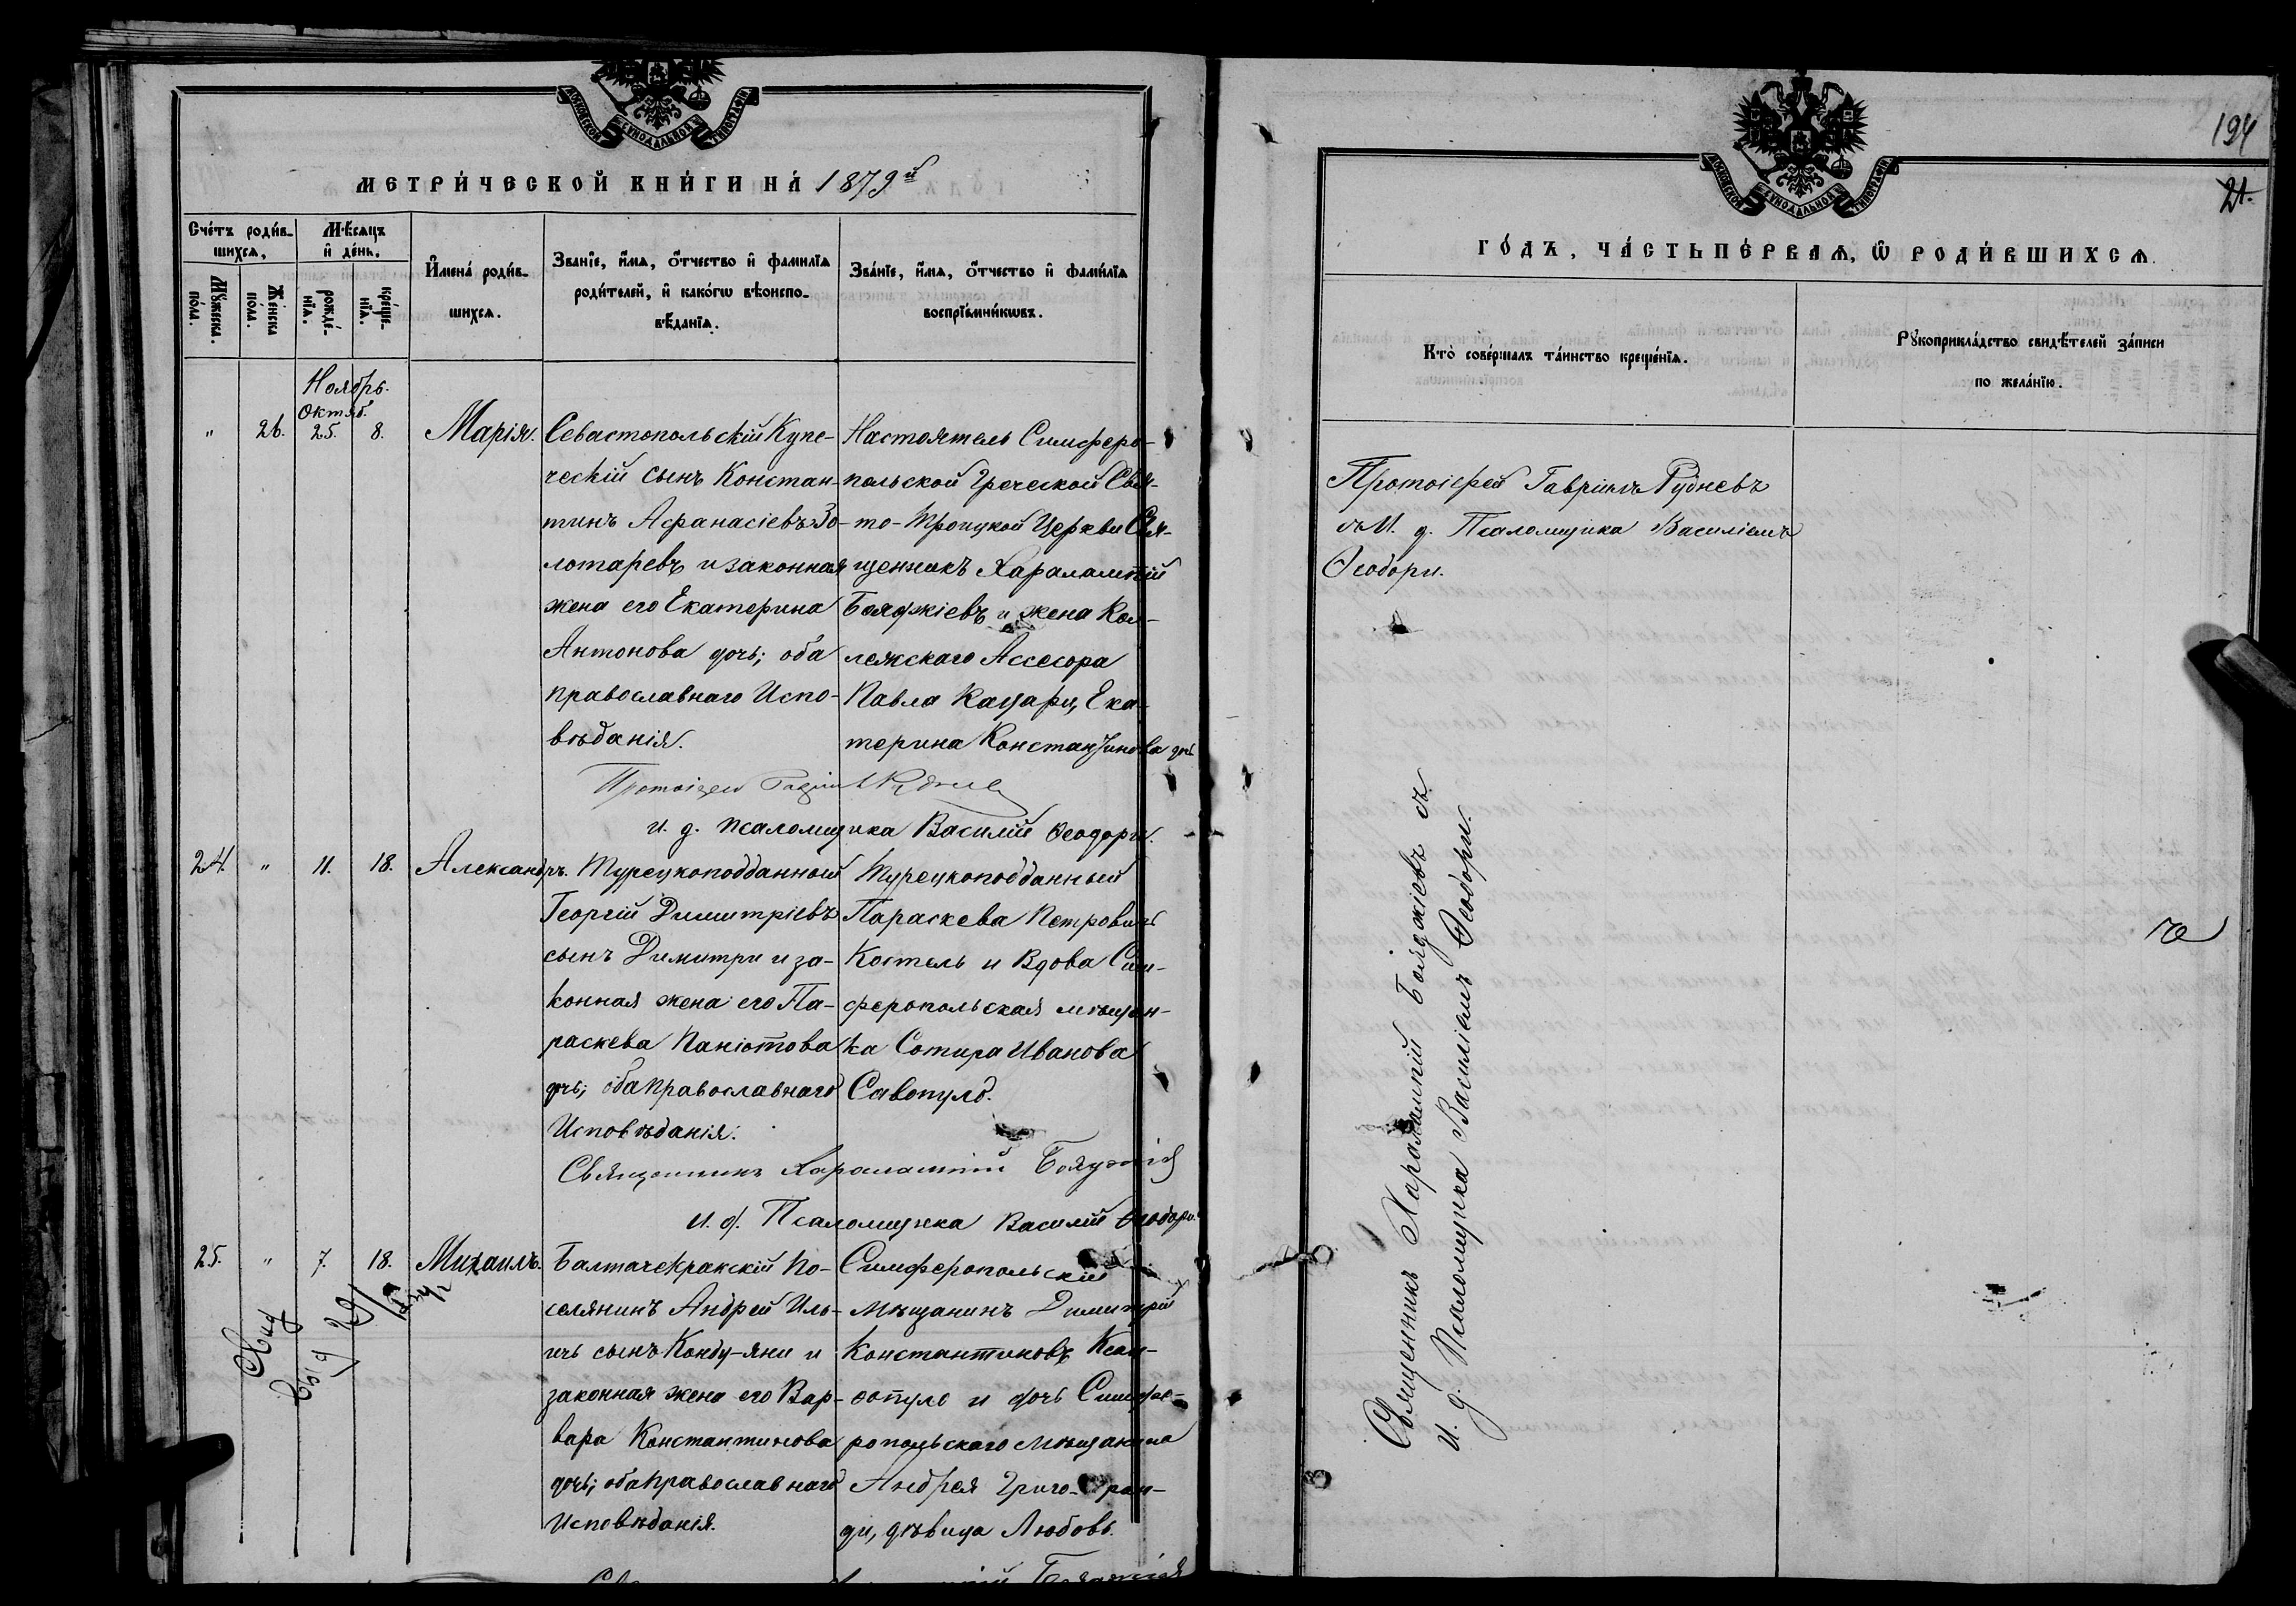 МОСКОВСКОЙ СѴНОДАЛЬНОЙ ТИПОГРАФІИ
МЕТРИ́ЧЕСКОЙ КНИ́ГИ НА́ 1879й
Сче́тъ роди́в-
шихся,
Мѣ́сяцъ
и҆ де́нь.
Мꙋ́жеска
по́ла.
Же́нска
по́ла.
рожде́-
нїя.
креще́-
нїя.
И҆мена́ роди́в-
шихся.
Зва́нїе, и҆́мя, ѻ҆́тчество и҆ фами́лїя
роди́телей, и҆ како́гѡ вѣ́роиспо-
вѣ́данїя.
Зва́нїе, и҆́мя, ѻ҆́тчество и҆ фами́лїя
воспрїе́мникѡвъ.
Ноябрь.
Октяб.
" 26. 25. 8. Марія.
Севастопольскій Купе-
ческій сынъ Констан-
тинъ Афанасіевъ Зо-
лотаревъ и законная
жена его Екатерина
Антонова дочь; оба
православнаго Испо-
вѣданія.
Настоятель Симферо-
польской Греческой Свя-
то-Троицкой Церкви Свя-
щенникъ Харалампій
Бояджіевъ и жена Кол-
лежскаго Ассесора
Павла Кацари, Ека-
терина Константинова дочь
Протоіерей Гавріилъ Рудневъ
и. д. псаломщика Василій Ѳеодори.
24. " 11. 18. Александръ.
Турецкоподданный
Георгій Димитріевъ
сынъ Димитри и за-
конная жена его Па-
раскева Паніотова
дочь; оба православнаго
Исповѣданія.
Турецкоподданный
Параскева Петровичъ
Костель и Вдова Сим-
феропольская мѣщан-
ка Сотира Иванова
Савопуло.
Священникъ Харалампій Бояджіевъ
И. д. Псаломщика Василій Ѳеодори.
25. " 7. 18. Михаилъ.
Балтачекракскій По-
селянинъ Андрей Иль-
ичъ сынъ Конду-Яни и
законная жена его Вар-
вара Константинова
дочь; оба православнаго
Исповѣданія.
Симферопольскій
Мѣщанинъ Димитрій
Константиновъ Ксан-
допуло и дочь Симфе-
ропольскаго Мѣщанина
Андрея Григо-ран-
ди, дѣвица Любовь.
194
21.
МОСКОВСКОЙ СѴНОДАЛЬНОЙ ТИПОГРАФІИ
ГО́ДЪ, ЧА́СТЬ ПЕ́РВАЯ, Ѽ РОДИ́ВШИХСЯ.
Кто̀ соверша́лъ та́инство креще́нїя.
Рꙋкоприкла́дство свидѣ́телей за́писи
по жела́нїю.
Протоіерей Гавріилъ Рудневъ
съ И. д. Псаломщика Василіемъ
Ѳеодори.
Священникъ Харалампій Бояджіевъ съ
И. д. Псаломщика Василіемъ Ѳеодори.